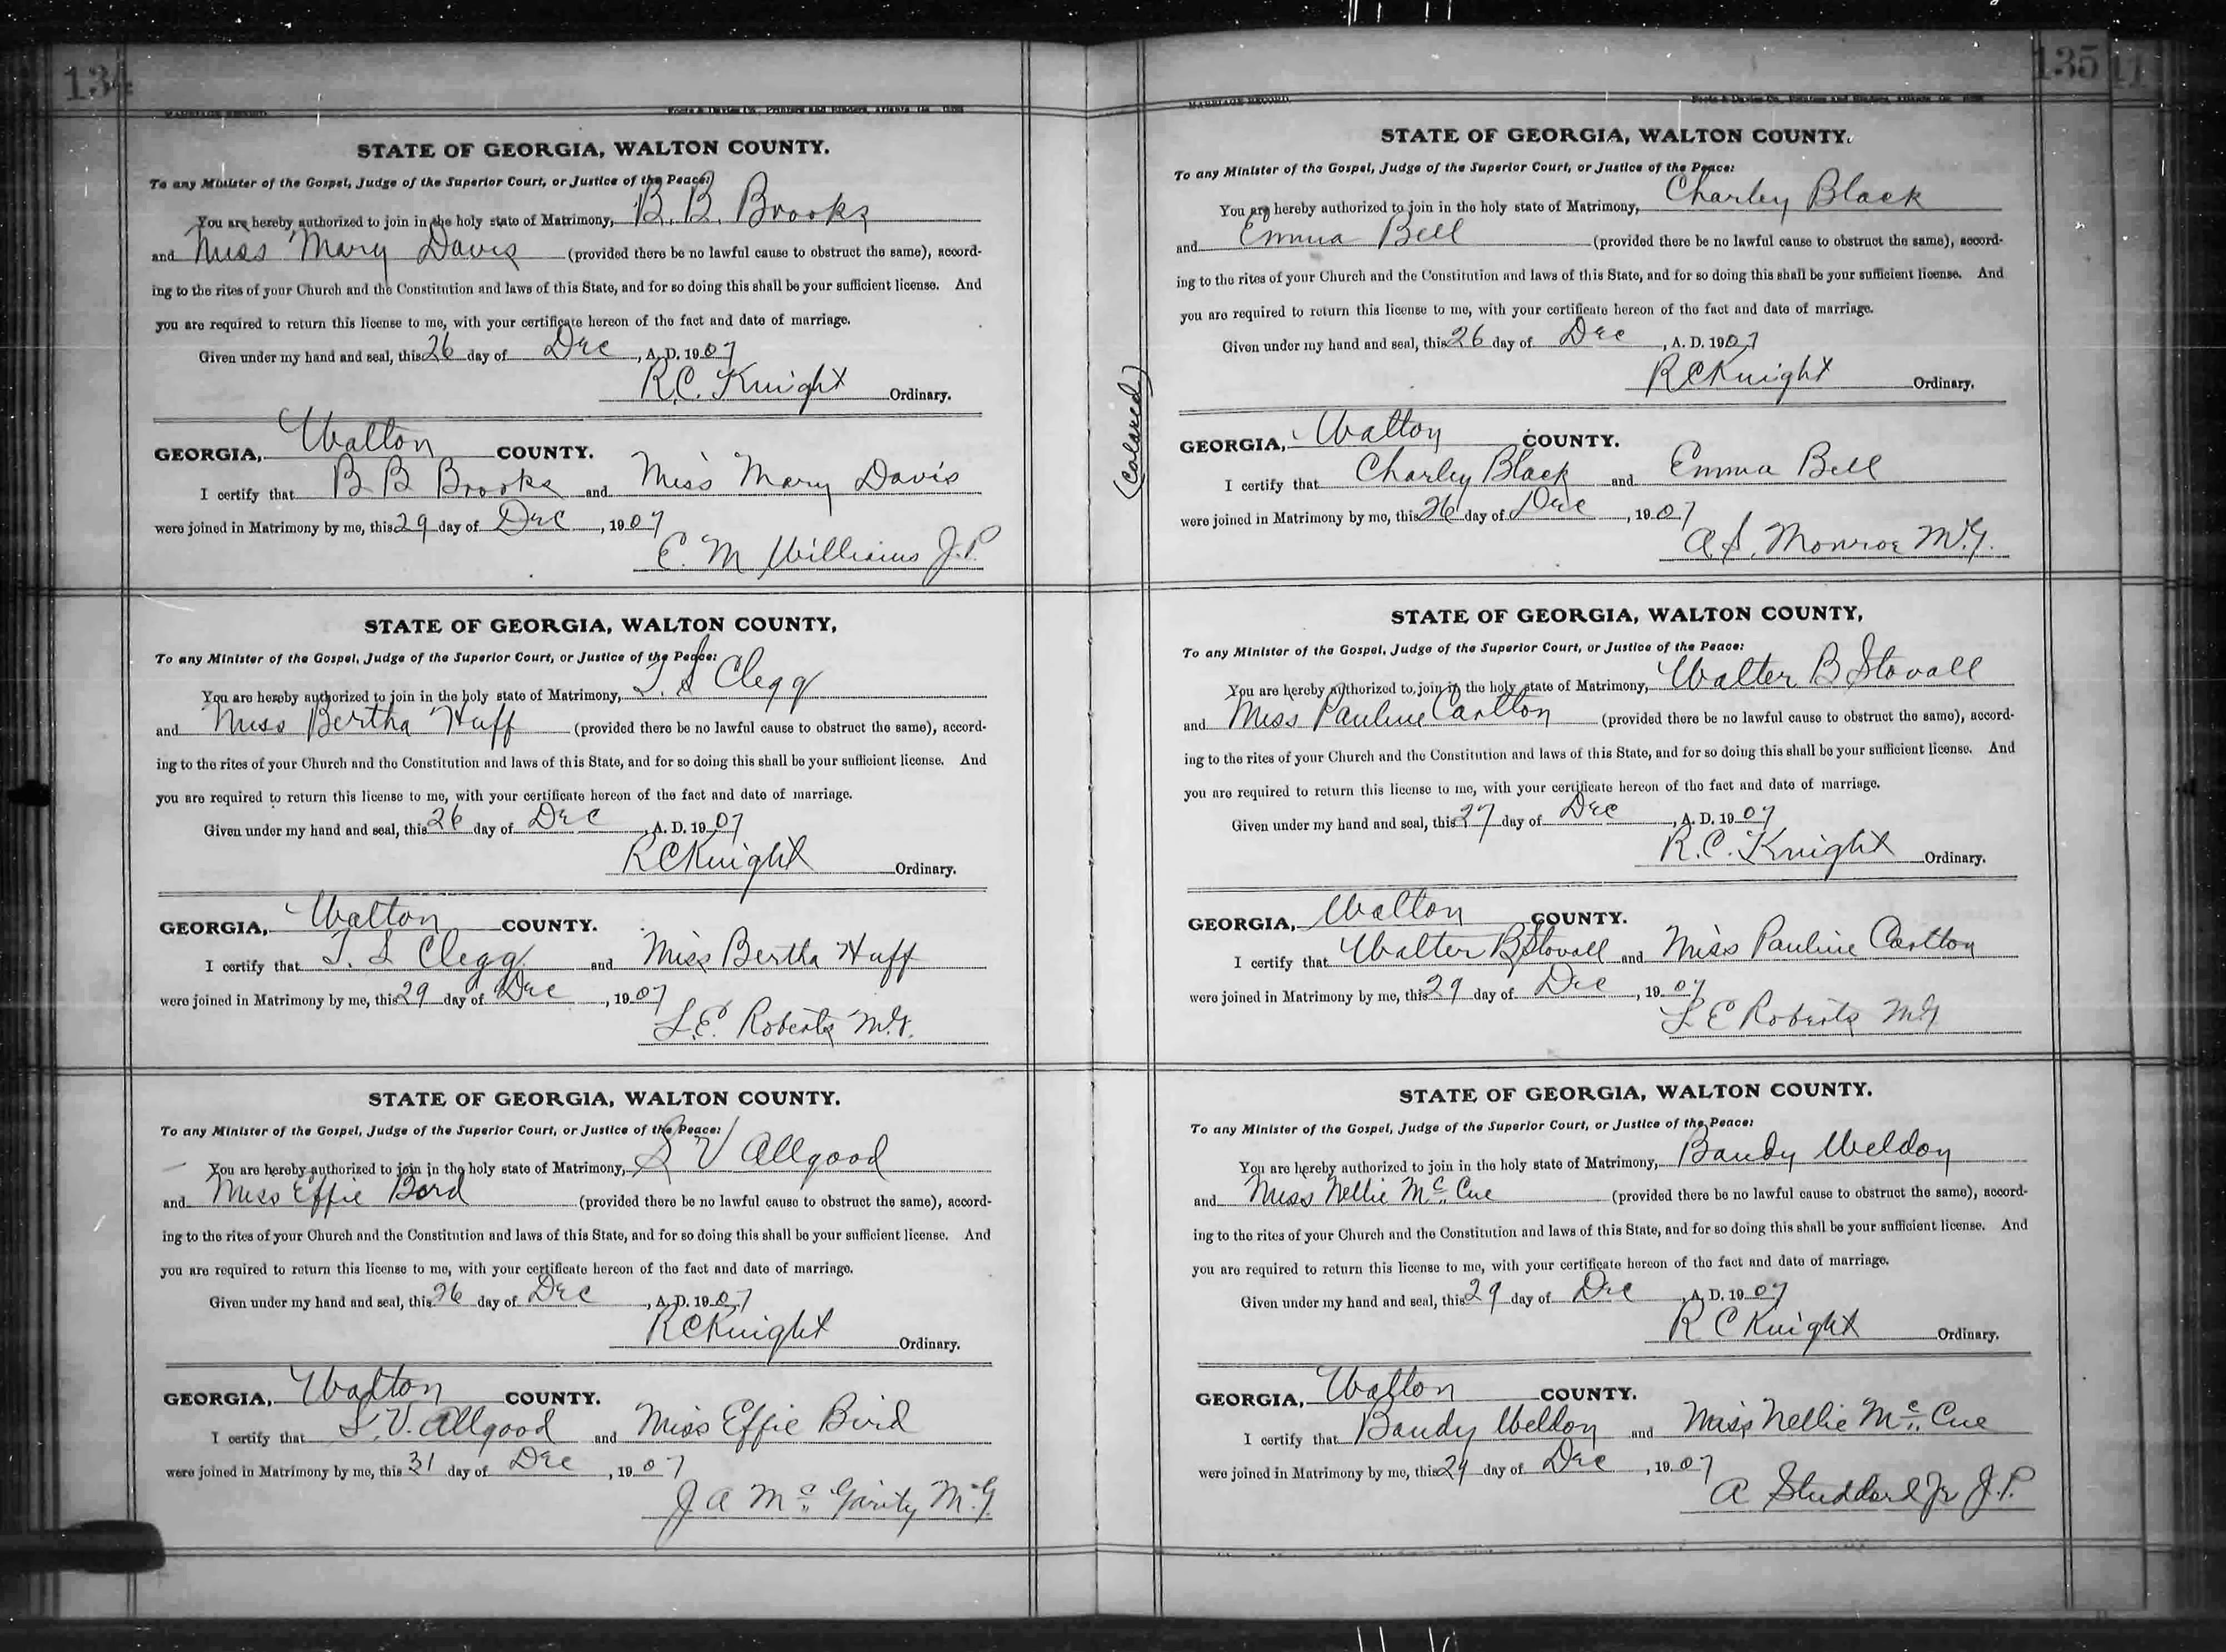 134
MARRIAGE RECORD Foote & Davies Co., Printers and Binders, Atlanta, Ga.
STATE OF GEORGIA, WALTON COUNTY.
To any Minister of the Gospel, Judge of the Superior Court, or Justice of the Peace:
You are hereby authorized to join in the holy state of Matrimony, B. B. Brooks
and Miss Mary Davis (provided there be no lawful cause to obstruct the same), accord-
ing to the rites of your Church and the Constitution and laws of this State, and for so doing this shall be your sufficient license. And
you are required to return this license to me, with your certificate hereon of the fact and date of marriage.
Given under my hand and seal, this 26 day of Dec, A. D. 1907
R.C. Knight Ordinary.
GEORGIA, Walton COUNTY.
I certify that B B Brooks and Miss Mary Davis
were joined in Matrimony by me, this 29 day of Dec, 1907
E. M Williams J.P.
STATE OF GEORGIA, WALTON COUNTY,
To any Minister of the Gospel, Judge of the Superior Court, or Justice of the Peace:
You are hereby authorized to join in the holy state of Matrimony, T. S Clegg
and Miss Bertha Huff (provided there be no lawful cause to obstruct the same), accord-
ing to the rites of your Church and the Constitution and laws of this State, and for so doing this shall be your sufficient license. And
you are required to return this license to me, with your certificate hereon of the fact and date of marriage.
Given under my hand and seal, this 26 day of Dec, A. D. 1907
R C Knight Ordinary.
GEORGIA, Walton COUNTY.
I certify that T. S Clegg and Miss Bertha Huff
were joined in Matrimony by me, this 29 day of Dec, 1907
L.E. Roberts M.G.
STATE OF GEORGIA, WALTON COUNTY.
To any Minister of the Gospel, Judge of the Superior Court, or Justice of the Peace:
You are hereby authorized to join in the holy state of Matrimony, S V Allgood
and Miss Effie Bird (provided there be no lawful cause to obstruct the same), accord-
ing to the rites of your Church and the Constitution and laws of this State, and for so doing this shall be your sufficient license. And
you are required to return this license to me, with your certificate hereon of the fact and date of marriage.
Given under my hand and seal, this 26 day of Dec, A. D. 1907
R C Knight Ordinary.
GEORGIA, Walton COUNTY.
I certify that S. V. Allgood and Miss Effie Bird
were joined in Matrimony by me, this 31 day of Dec, 1907
J A McGarity M.G.
135
MARRIAGE RECORD Foote & Davies Co., Printers and Binders, Atlanta, Ga.
STATE OF GEORGIA, WALTON COUNTY.
To any Minister of the Gospel, Judge of the Superior Court, or Justice of the Peace:
You are hereby authorized to join in the holy state of Matrimony, Charley Black
and Emma Bell (provided there be no lawful cause to obstruct the same), accord-
ing to the rites of your Church and the Constitution and laws of this State, and for so doing this shall be your sufficient license. And
you are required to return this license to me, with your certificate hereon of the fact and date of marriage.
Given under my hand and seal, this 26 day of Dec, A. D. 1907
R C Knight Ordinary.
(colored)
GEORGIA, Walton COUNTY.
I certify that Charley Black and Emma Bell
were joined in Matrimony by me, this 26 day of Dec, 1907
A. S. Monroe M.G.
STATE OF GEORGIA, WALTON COUNTY,
To any Minister of the Gospel, Judge of the Superior Court, or Justice of the Peace:
You are hereby authorized to join in the holy state of Matrimony, Walter B Stovall
and Miss Pauline Carlton (provided there be no lawful cause to obstruct the same), accord-
ing to the rites of your Church and the Constitution and laws of this State, and for so doing this shall be your sufficient license. And
you are required to return this license to me, with your certificate hereon of the fact and date of marriage.
Given under my hand and seal, this 27 day of Dec, A. D. 1907
R. C. Knight Ordinary.
GEORGIA, Walton COUNTY.
I certify that Walter B Stovall and Miss Pauline Carlton
were joined in Matrimony by me, this 29 day of Dec, 1907
L E Roberts M G
STATE OF GEORGIA, WALTON COUNTY.
To any Minister of the Gospel, Judge of the Superior Court, or Justice of the Peace:
You are hereby authorized to join in the holy state of Matrimony, Bandy Weldon
and Miss Nellie McCue (provided there be no lawful cause to obstruct the same), accord-
ing to the rites of your Church and the Constitution and laws of this State, and for so doing this shall be your sufficient license. And
you are required to return this license to me, with your certificate hereon of the fact and date of marriage.
Given under my hand and seal, this 29 day of Dec, A. D. 1907
R C Knight Ordinary.
GEORGIA, Walton COUNTY.
I certify that Bandy Weldon and Miss Nellie McCue
were joined in Matrimony by me, this 29 day of Dec, 1907
A Studdard Jr J.P.